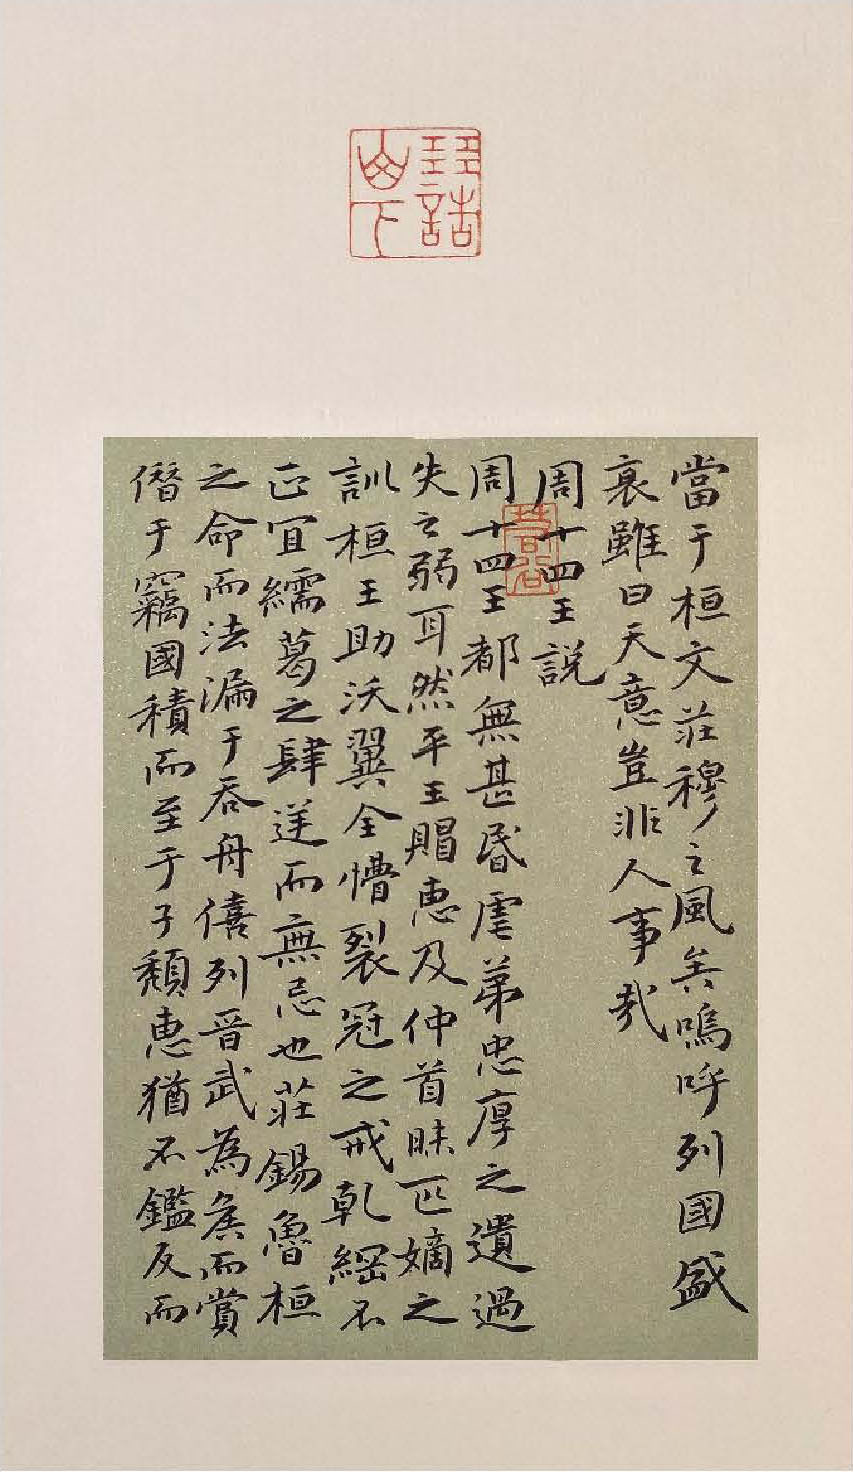 當于桓文莊穆之風矣嗚呼列國盛
衰雖曰天意豈非人事哉
周十四王說
周十四王都無甚昏虐第忠厚之遺過
失之弱耳然平王賵惠及仲首昧匹嫡之
訓桓王助沃翼全懵裂冠之戒乹綱不
正宜繻葛之肆逆而無忌也莊錫魯桓
之命而法漏于吞舟僖列晉武為矦而賞
僭于竊國積而至于子頹惠猶不鑑反而